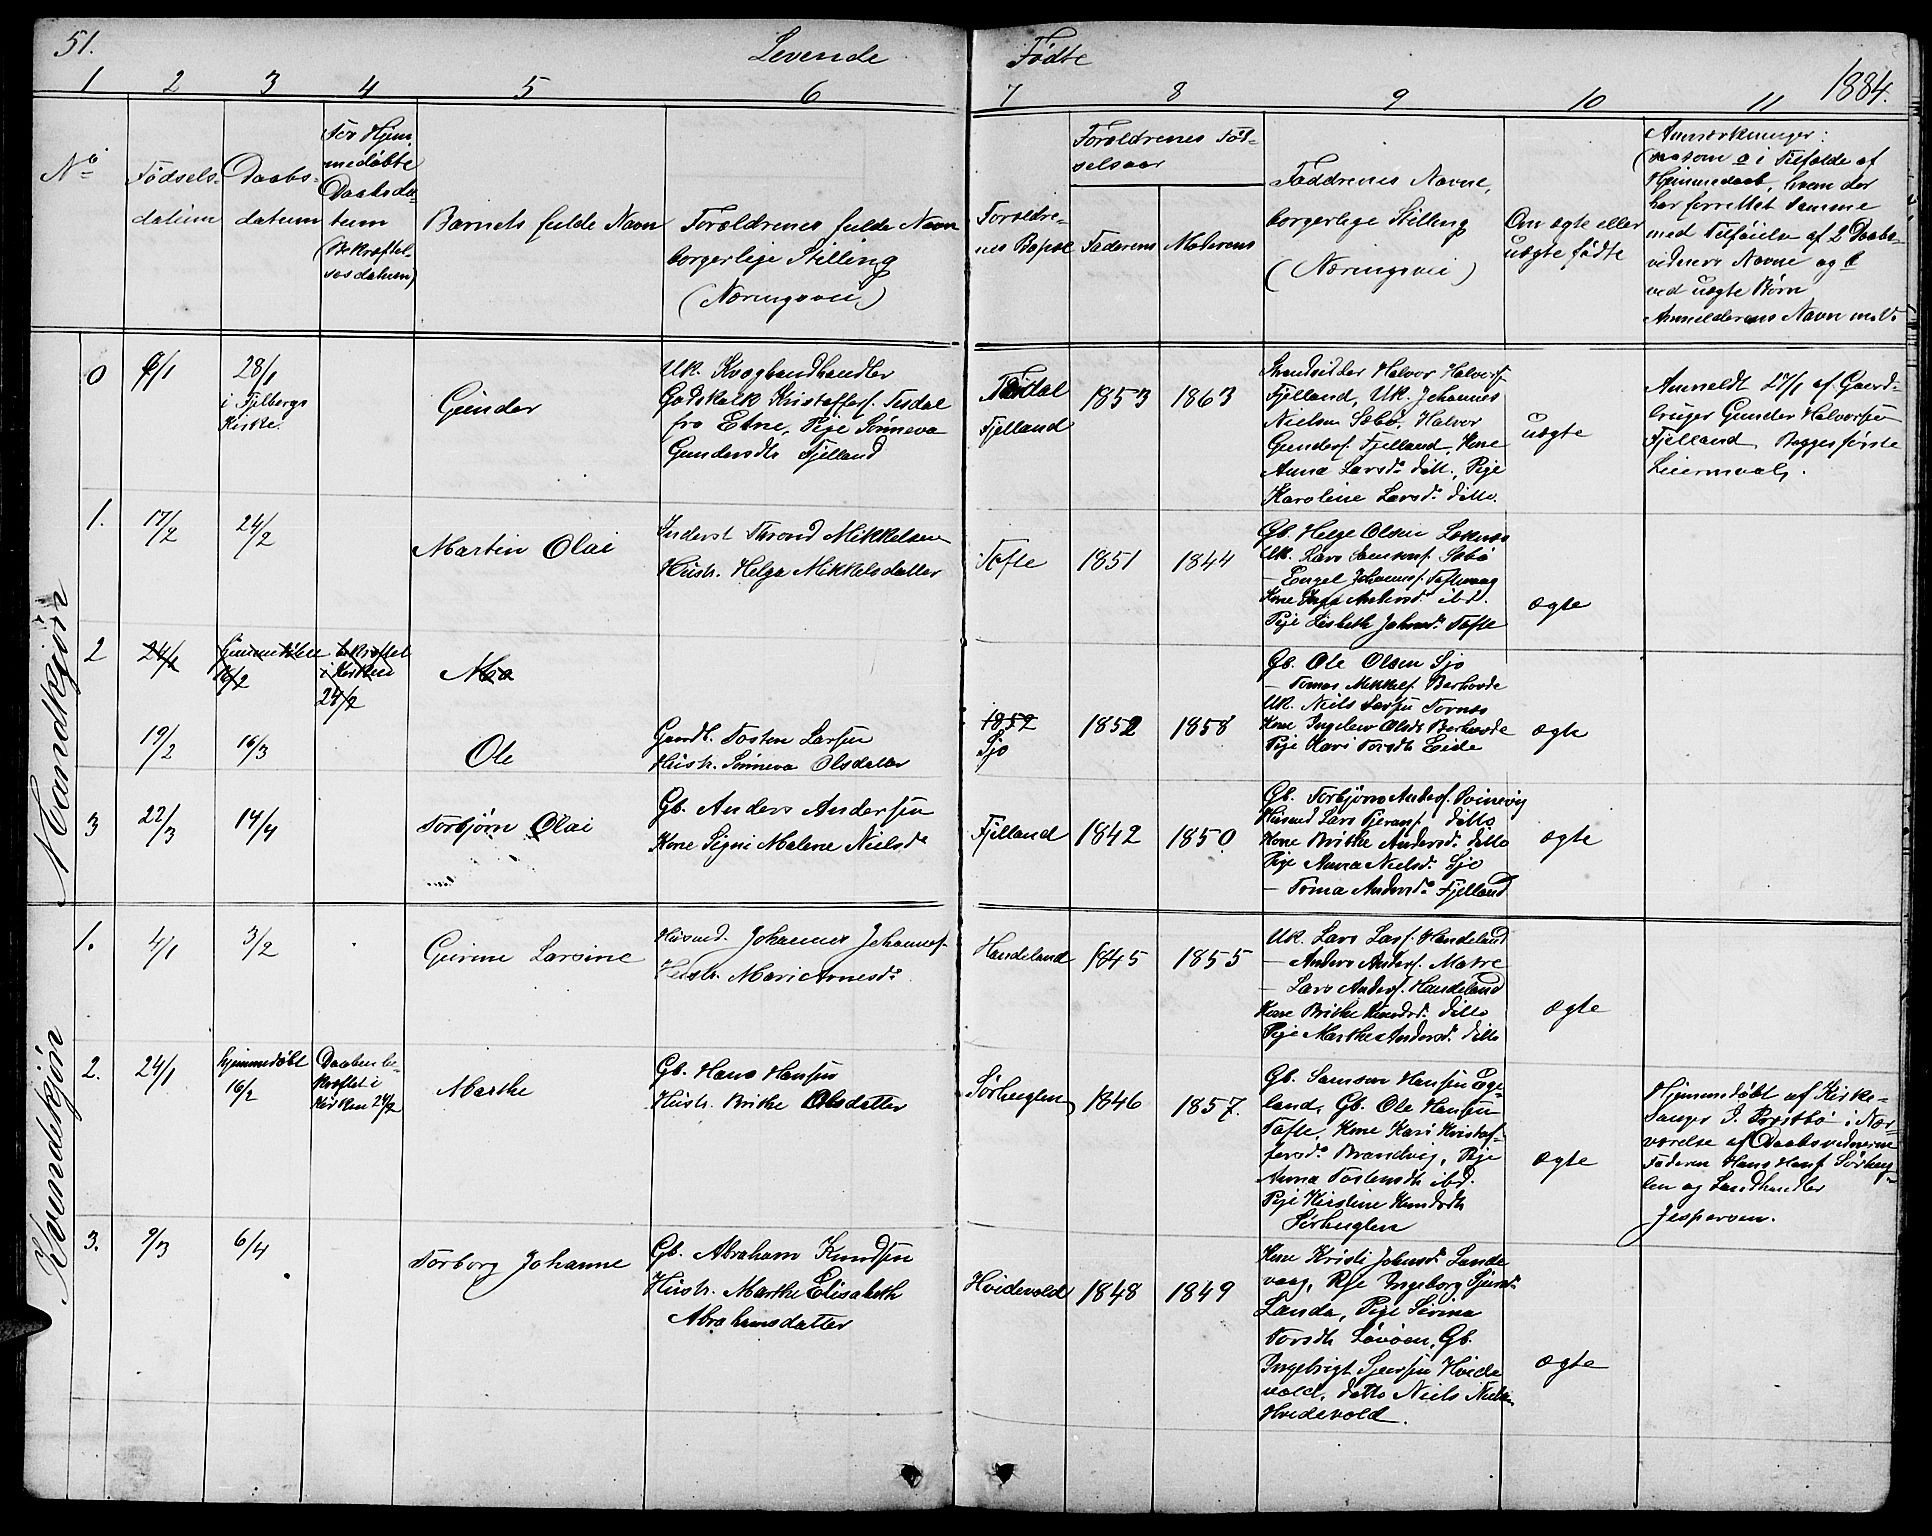 51.
Levende
Fødte
1884.
1 2 3 4 5 6
7 8 9 10 11
No
Fødsels-
datum
Daabs-
datum
For Hjem-
medøbte
Daabsda-
tum
(Bekræftel-
sesdatum)
Barnets fulde Navn
Forældrenes fulde Navn
borgerlige Stilling
(Næringsvei)
Forældre-
nes Bopæl
Forældrenes Fød-
selsaar
Faderens
Moderens
Faddrenes Navne,
borgerlige Stilling
(Næringsvei)
Om ægte eller
uægte fødte
Anmærkninger:
saasom a i Tilfælde af
Hjemmedaab, hvem der
har forrettet samme
med Tilføielse af 2 Daabs-
vidners Navne og b
ved uægte Børn
Anmelderens Navn m.V.
Mandkjøn
0
6/1
28/1
i Fjelbergs
Kirke
Gunder
Uk. Kvæghandhandler
Godskalk Kristoffers. Tesdal
fra Etne, Pige Sønneva
Gundersdtr Fjelland
Tesdal
Fjelland
1853
1863
Strandsidder Halvor Halvors.
Fjelland, Uk. Johannes
Nielsen Sæbø, Halvor
Gunders. Fjelland, Kone
Anna Larsd. ditto, Pige
Karoline Larsd. ditto.
uægte
Anmeldt 27/1 af Gaard-
bruger Gunder Halvorsen
Fjelland. Begges første
Leiermaal.
1.
17/2
24/2
Martin Olai
Inderst Thrond Mikkelsen
Hustr. Helga Mikkelsdatter
Tofte
1851
1844
Gb. Helge Olsen Løknes
Uk. Lars Samsons. Sæbø
— Engel Johannes. Toftevaag
Kone Inga Andersd. ibd.
Pige Lisbeth Johnsd. Tofte
ægte
2
24/1
hjemmedøbt
16/2
bekræftet
i Kirken
24/2
Ma
19/2
16/3
Ole
Gaardb. Tosten Larsen
Hustr. Sønneva Olsdatter
1852
Sjo
1852
1858
Gb. Ole Olsen Sjo
— Tomas Mikkels. Berhovde
Uk. Niels Larsen Tornæs
Kone Ingeleiv Olsdtr Berhovde
Pige Kari Torsdtr Eide
ægte
3
22/3
14/4
Torbjørn Olai
Gb. Anders Andersen
Kone Signi Malene Nielsd.
Fjelland
1842
1850
Gb. Torbjørn Anders. Svinevig
Husmd Lars Tjerans. ditto
Kone Brithe Andersd. ditto
Pige Anna Nielsd. Sjo
— Toma Andersd. Fjelland
ægte
Kvindekjøn
1.
4/1
3/2
Gurine Larsine
Husmd. Johannes Johannes.
Hustr. Mari Arnesd.
Handeland
1845
1855
Uk. Lars Lars. Handeland
— Anders Anders. Matre
— Lars Anders. Handeland
Kone Brithe Knudsd. ditto
Pige Marthe Andersd. ditto
ægte
2.
24/1
hjemmedøbt
16/2
Daaben be-
kræftet i
Kirken 24/2
Marthe
Gb. Hans Hansen
Hustr. Brithe Olsdatter
Sørhuglen
1846
1857.
Gb. Samson Hansen Ege-
land, Gb. Ole Hansen
Tofte, Kone Kari Kristof-
fersd. Brandvig, Pige
Anna Tostensdtr ibd.
Pige Kirstine Knudsdtr
Sørhuglen
ægte
Hjemmedøbt af Kirke-
sanger J. Prestbø i Nær-
værelse af Daabsvidnerne
Faderen Hans Hans. Sørhug-
len og Landhandler
Jespersen.
3.
9/3
6/4
Torborg Johanne
Gb. Abraham Knudsen
Hustr. Marthe Elisabeth
Abrahamsdatter
Hvidevold
1848
1849
Kone Kristi Johnsd. Lande
vaag, Pige Ingeborg Sjursd.
Landa, Pige Sirina
Torsdtr Løvøen, Gb.
Ingebrigt Sjursen Hvide
vold, ditto Niels Nielsen
Hvidevold.
ægte